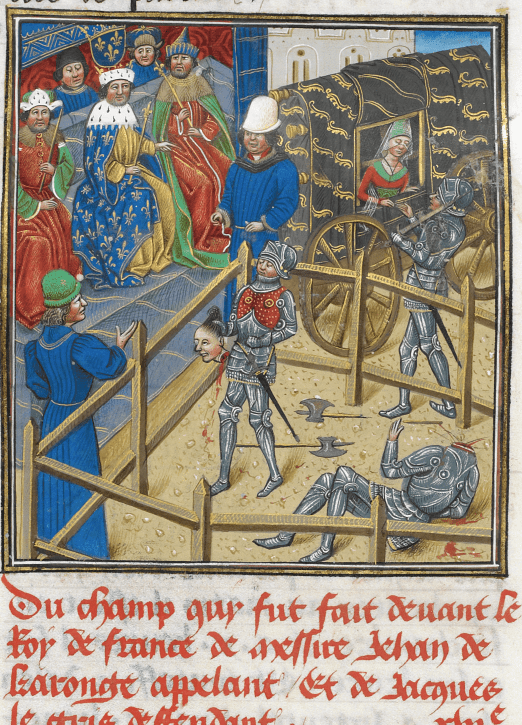 Du champ quy fut fait deuant le
Roy de france de messire Jehan de
karongte appelant / Et de Jacques
le gris deffendant